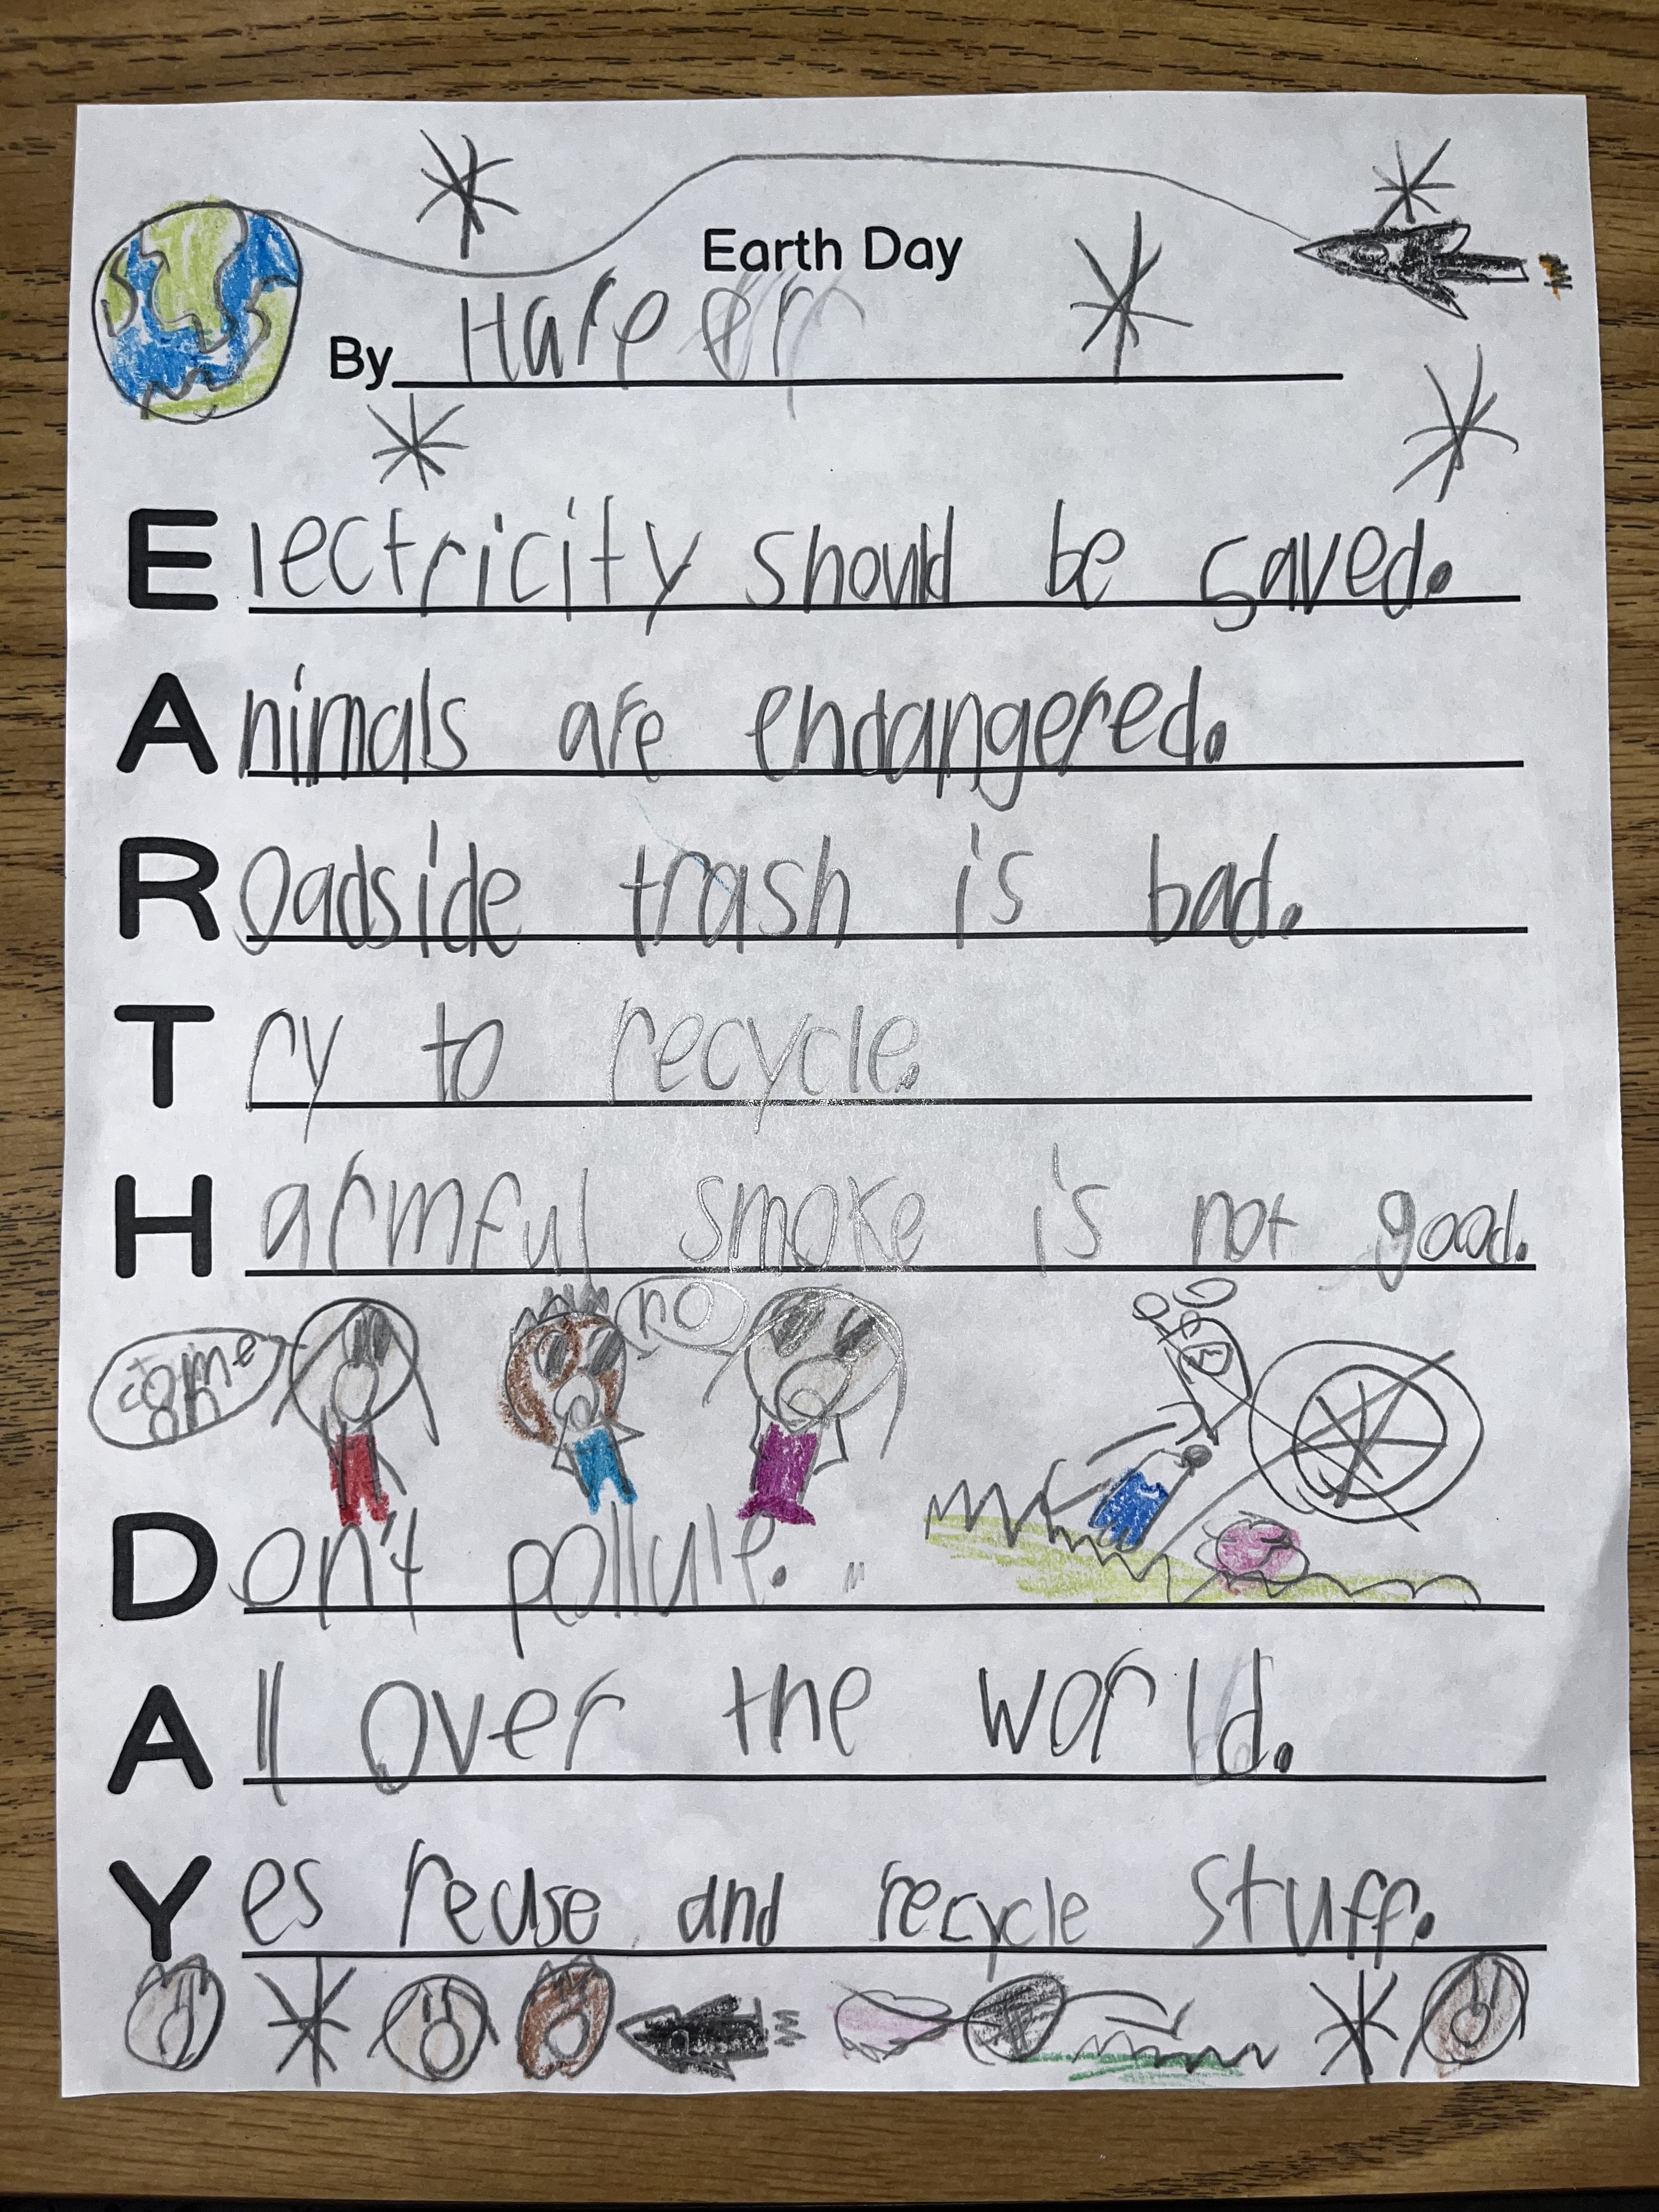 Earth Day
By
Electricity should be saved.
Animals are endangered.
Roadside trash is bad.
Try to recycle.
Harmful smoke is not good.
come on
no
Don't pollute.
All over the world.
Yes reuse and recycle stuff.